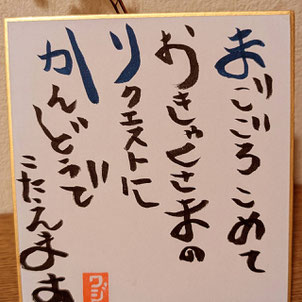 まごころこめて
おきゃくさまの
リクエストに
かんどうで
こたえます
ワジ